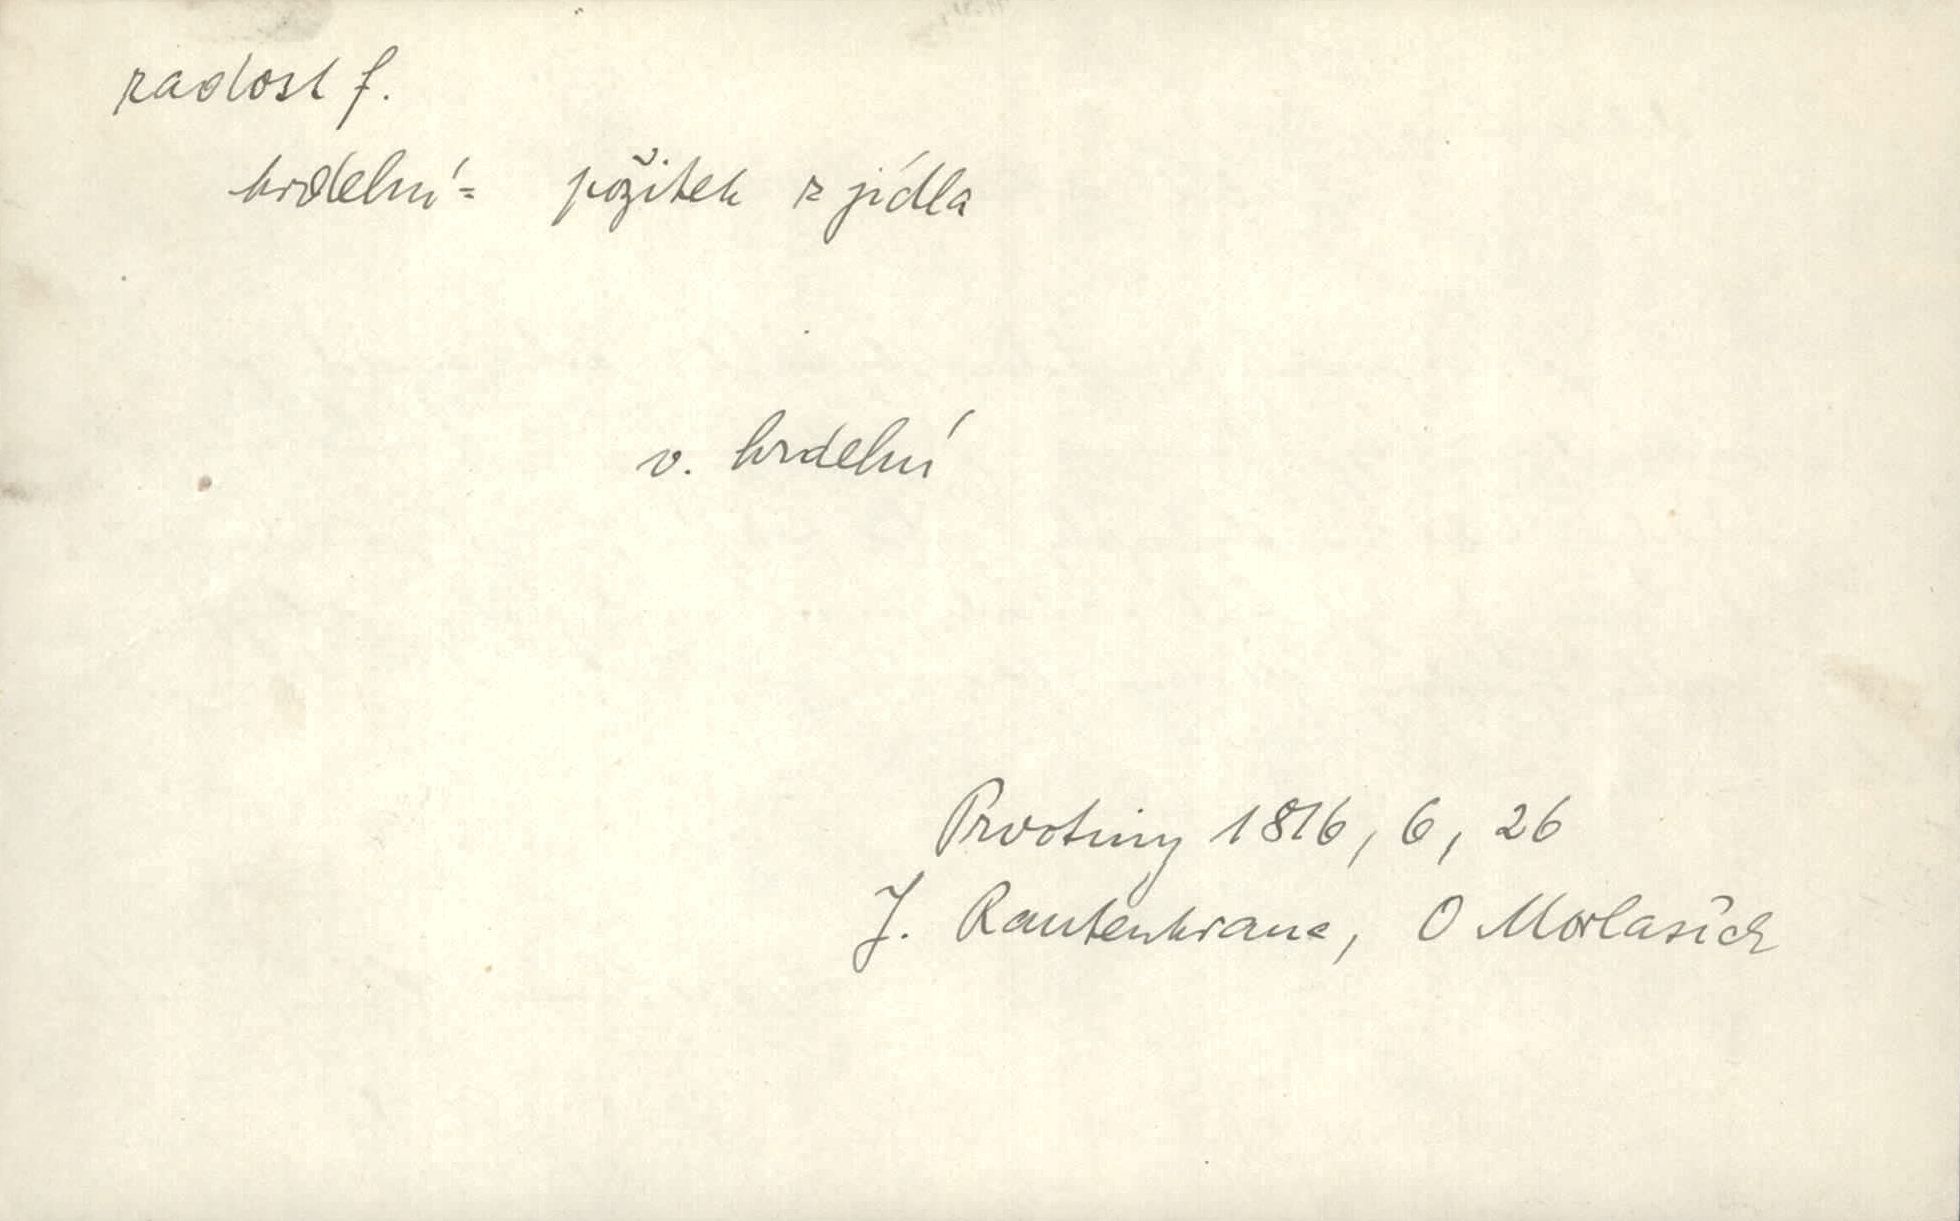 radost f.
hrdelní = požitek z jídla
v. hrdelní
Prvotiny 1816, 6, 26
J. Rautenkranc, O Morlasích